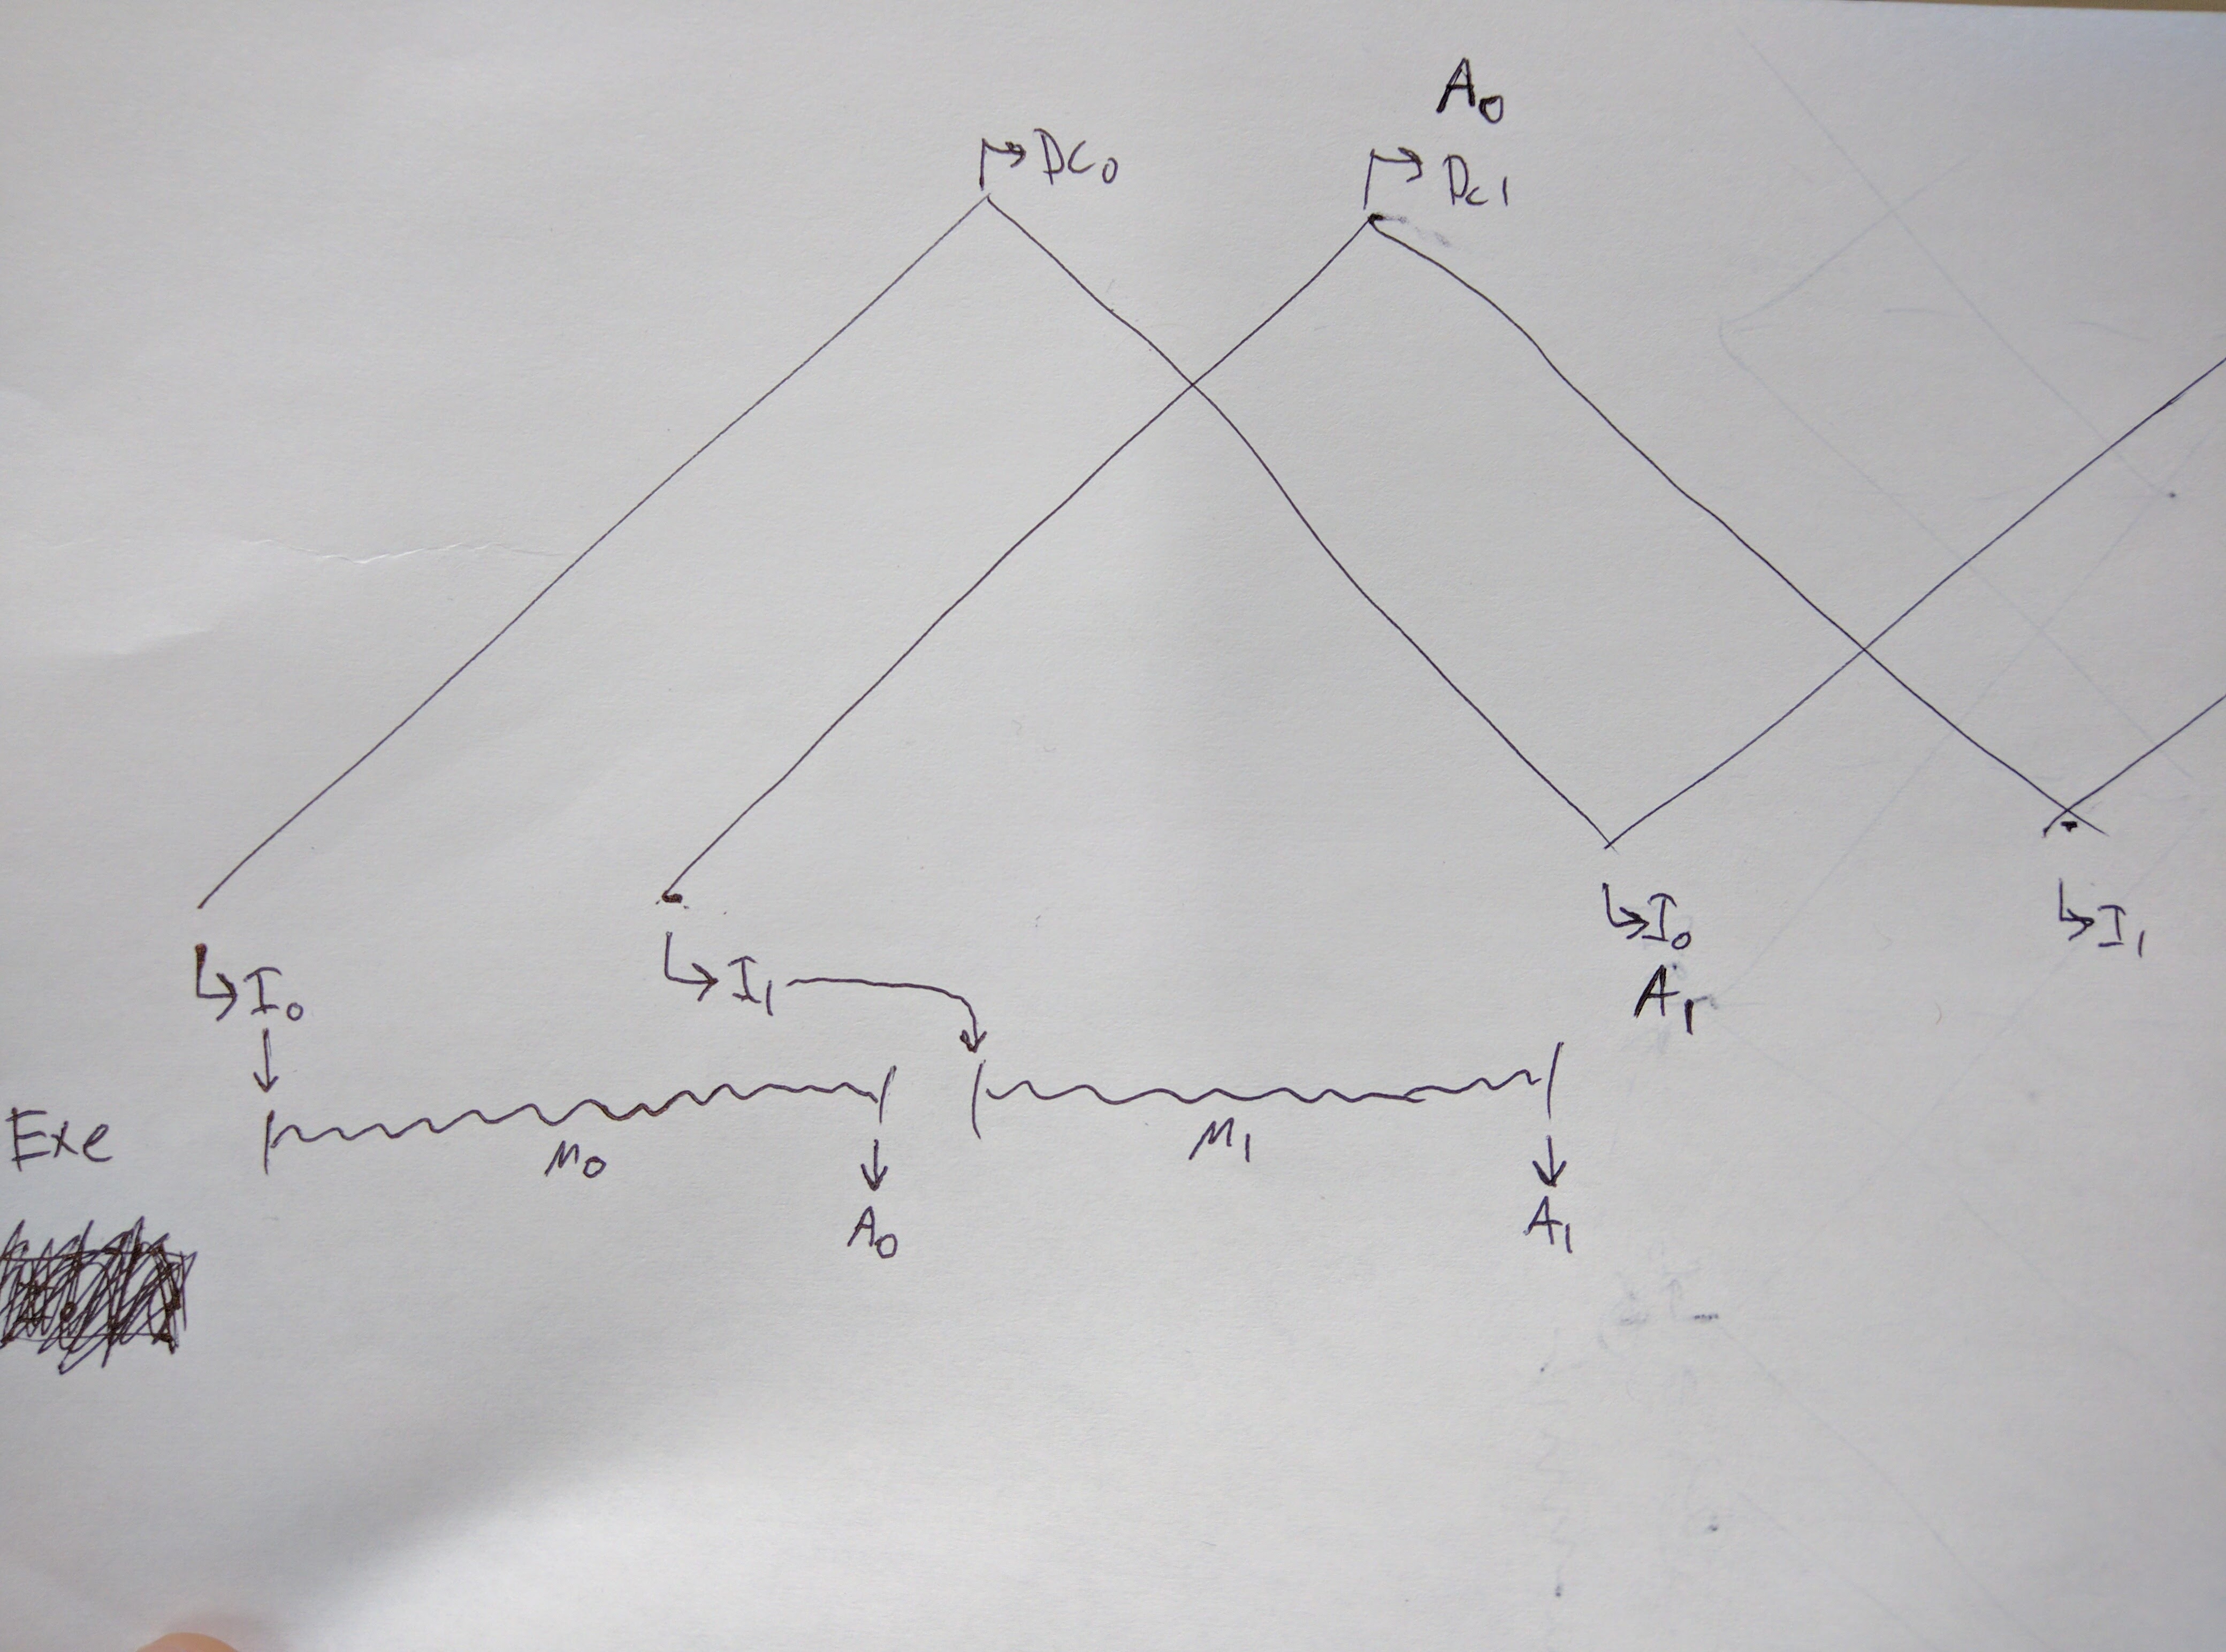 A₀
DC₀
DC1
I₀
I₁
I₀
I₁
A₁
Exe
M₀
M₁
A₀
A₁